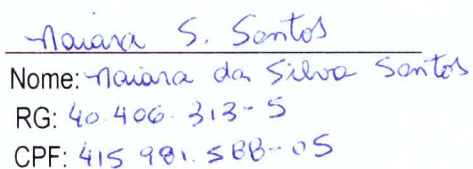 Naiara S. Santos
Nome: Naiara da Silva Santos
RG: 40.406.313-5
CPF: 415 981.588-05